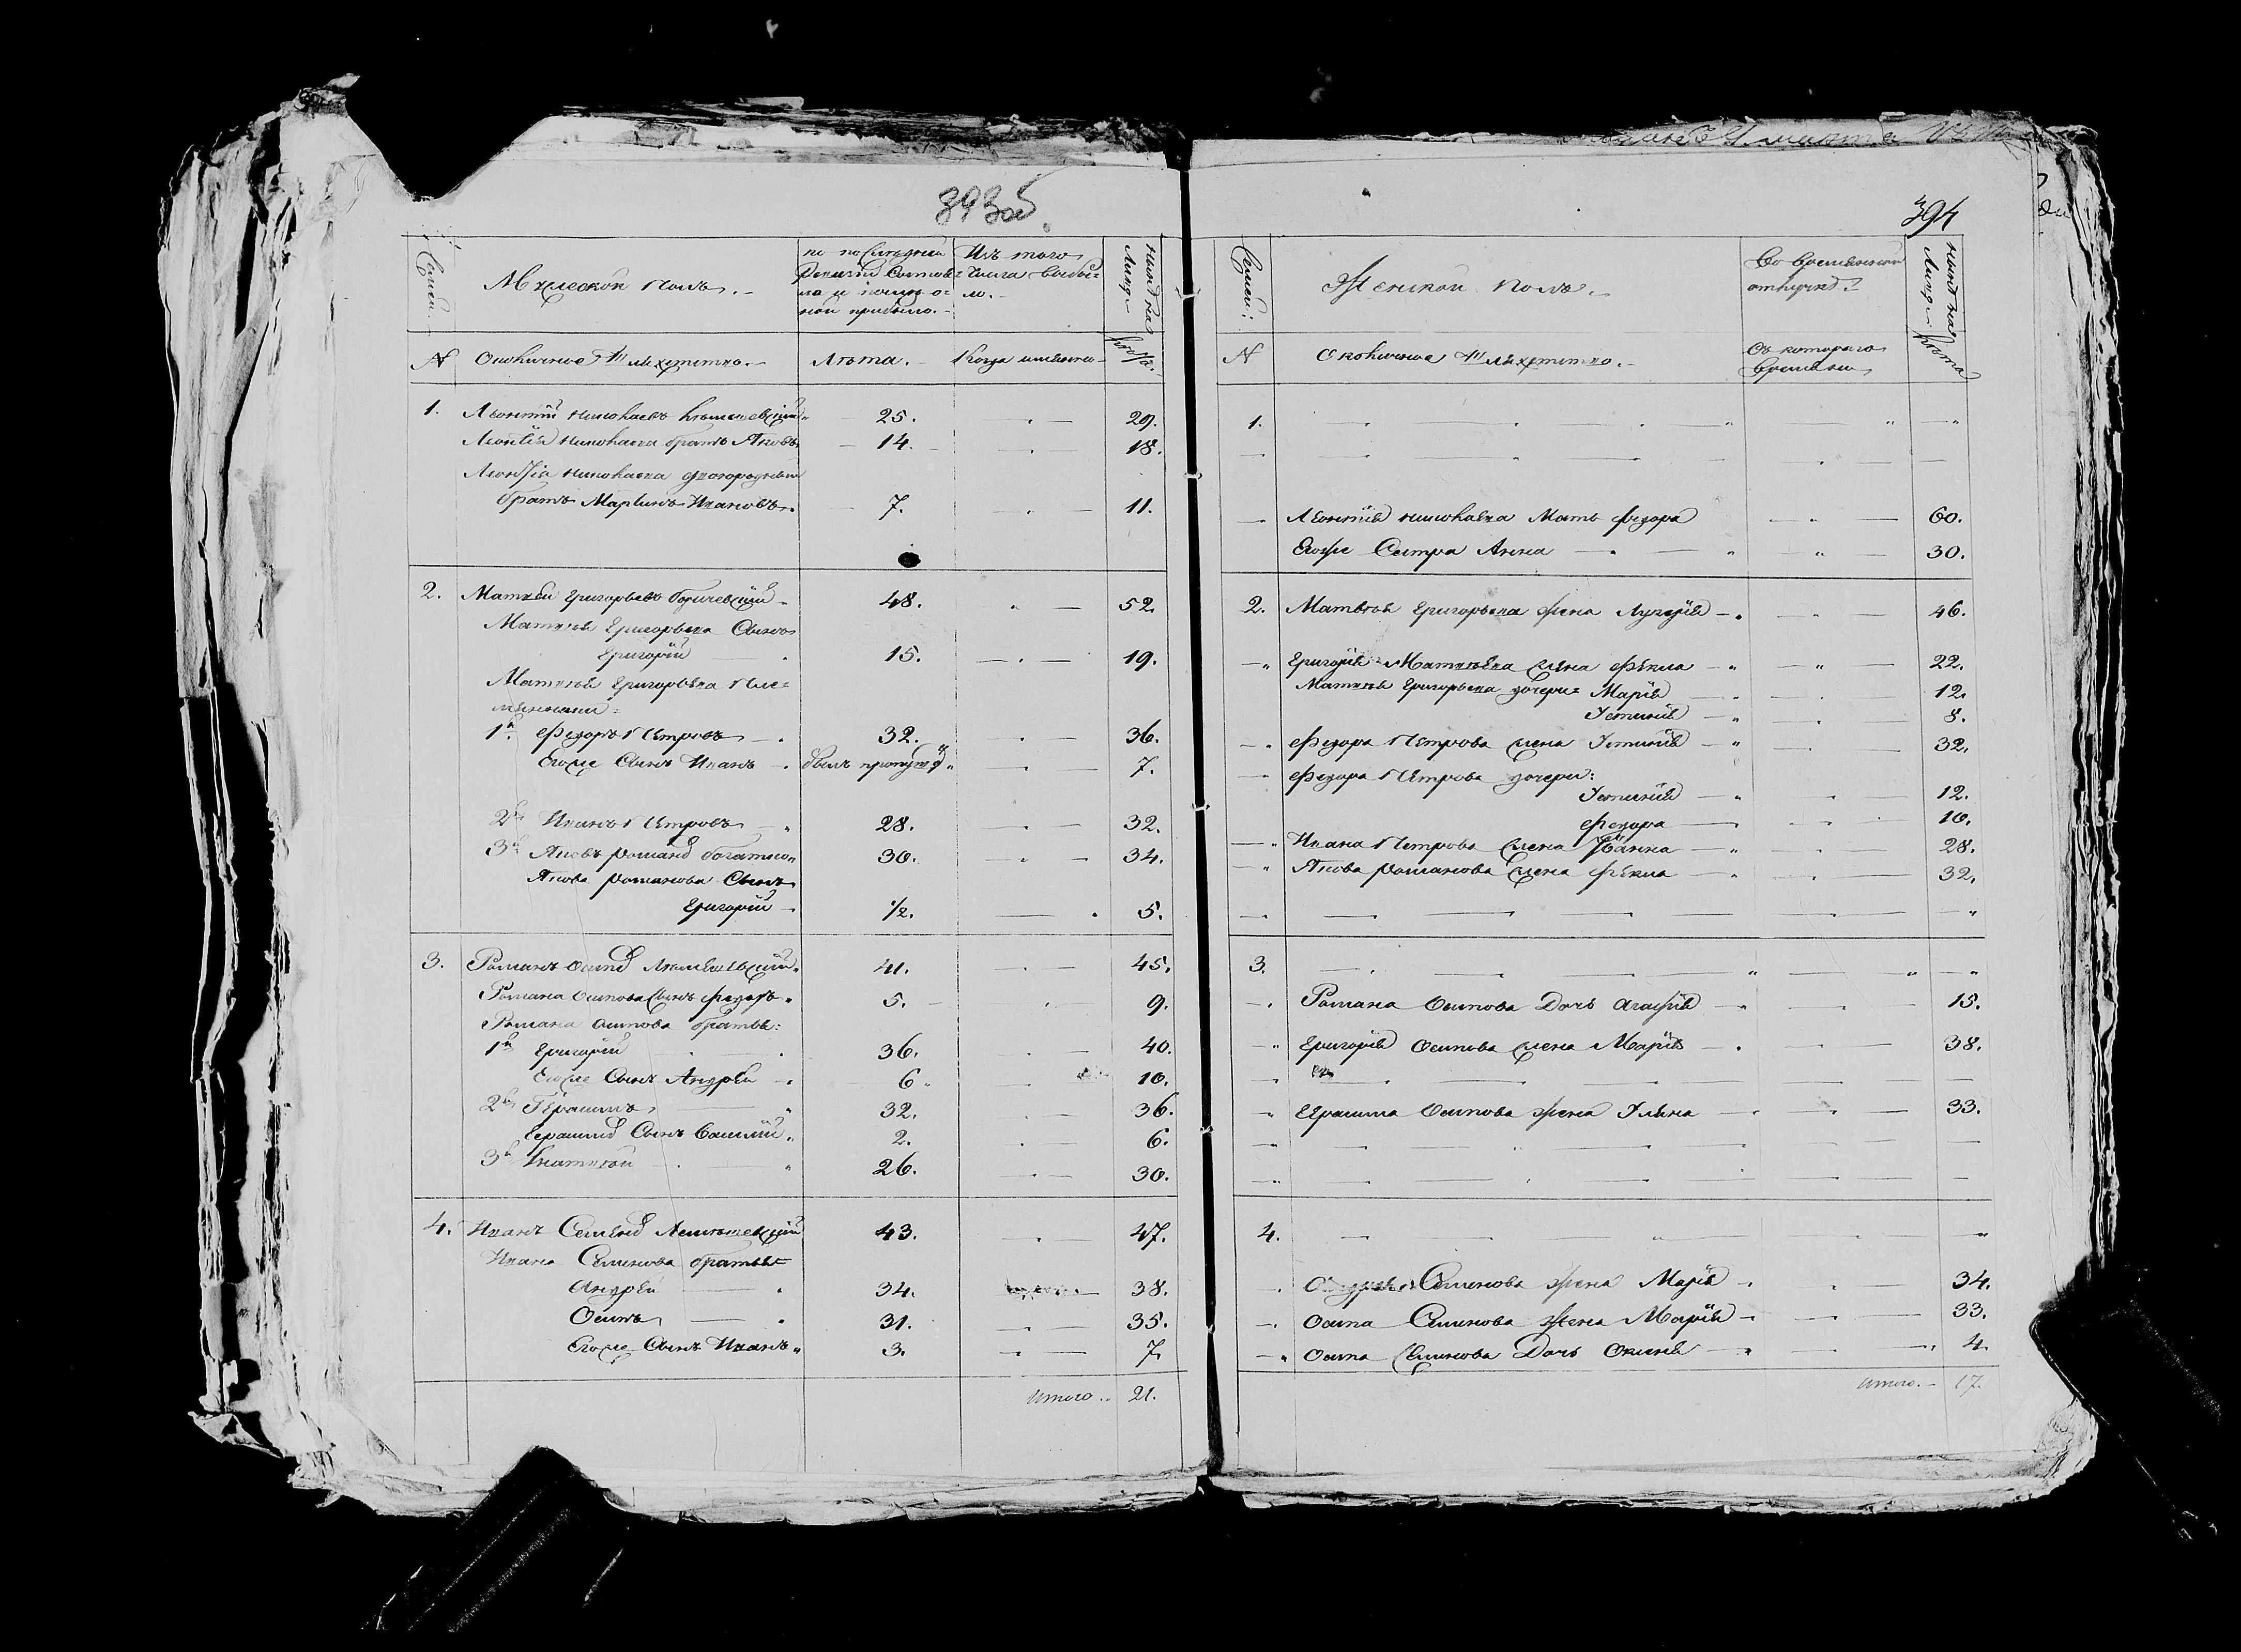 393об.
Семьи.
Мужеской полъ.
по последней
Ревизiи состоя-
ло и после о-
ной прибыло.
Изъ того
числа выбы-
ло.
ныне на
лицо
№
Околичное Шляхетство.
Лѣта.
Когда именно
лѣта.
1. Леонтiй Николаевъ 25. 29.
Леонтiя Николаева братъ Яковъ 14. 18.
Леонтiя Николаева двоюродный
братъ Мартинъ Ивановъ. 7. 11.
2. Матвей Григорьевъ 48. 52.
Матвея Григорьева Сынъ
Григорiй 15. 19.
Матвея Григорьева Пле-
мянники:
1й Федоръ Петровъ 32. 36.
Егоже Сынъ Иванъ былъ пропущ. 7.
2й Иванъ Петровъ 28. 32.
3й Яковъ Романовъ 30. 34.
Якова Романова Сынъ
Григорiй 1/2. 5.
3. Романъ Осиповъ 41. 45.
Романа Осипова Сынъ Федоръ 5. 9.
Романа Осипова братья:
1й Григорiй 36. 40.
Егоже Сынъ Андрей 6. 10.
2й Герасимъ 32. 36.
Герасима Сынъ Василiй 2. 6.
3й Игнатей 26. 30.
4. Иванъ Семеновъ 43. 47.
Ивана Семенова братья
Андрей 34. 38.
Осипъ 31. 35.
Егоже Сынъ Иванъ 3. 7.
Итого .. 21.
394
Семьи.
Женской полъ.
Во временной
отлучке
ныне на
лицо
№
Околичное Шляхетство.
Съ котораго
времени
лѣта
1.
Леонтiя Николаева Мать Федора 60.
Егоже Сестра Анна 30.
2. Матвея Григорьева жена Лукерiя 46.
Григорiя Матвѣева жена Фекла 22.
Матвея Григорьева дочери: Марiя 12.
Устинiя 8.
Федора Петрова жена Устинiя 32.
Федора Петрова дочери:
Устинiя 12.
Федора 10.
Ивана Петрова жена Иванна 28.
Якова Романова жена Фекла 32.
3.
Романа Осипова Дочь Агафiя 15.
Григорiя Осипова жена Марiя 38.
Герасима Осипова жена Ульяна 33.
4.
Андрея Семенова жена Марiя 34.
Осипа Семенова жена Марiя 33.
Осипа Семенова Дочь 4.
Итого. 17.